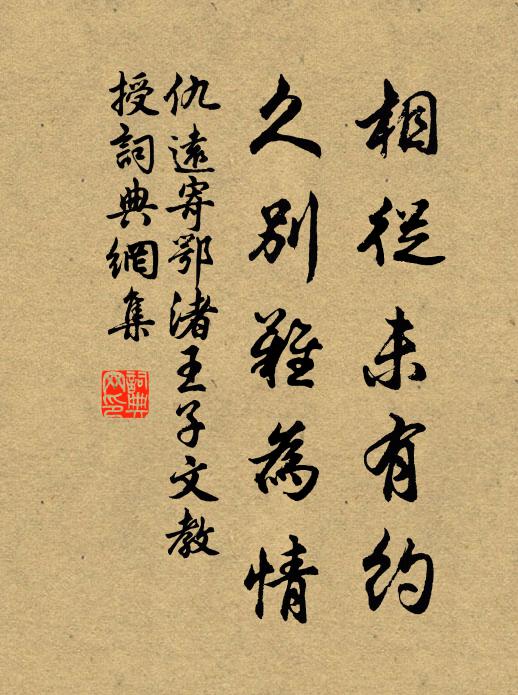 相從未有約
久別難為情
仇遠寄鄂渚王子文教
授詞典網集
詞典
网印